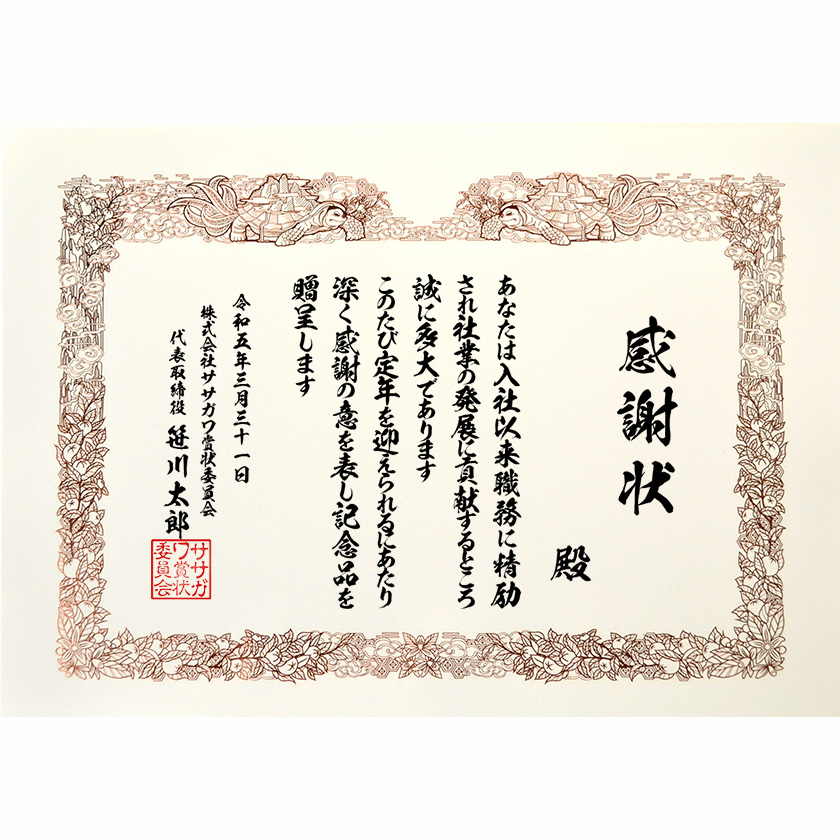 感謝状
殿
あなたは入社以来職務に精励
され社業の発展に貢献するところ
誠に多大であります
このたび定年を迎えられるにあたり
深く感謝の意を表し記念品を
贈呈します
令和五年三月三十一日
株式会社ササガワ賞状委員会
代表取締役 笹川太郎
ササガ
ワ賞状
委員会